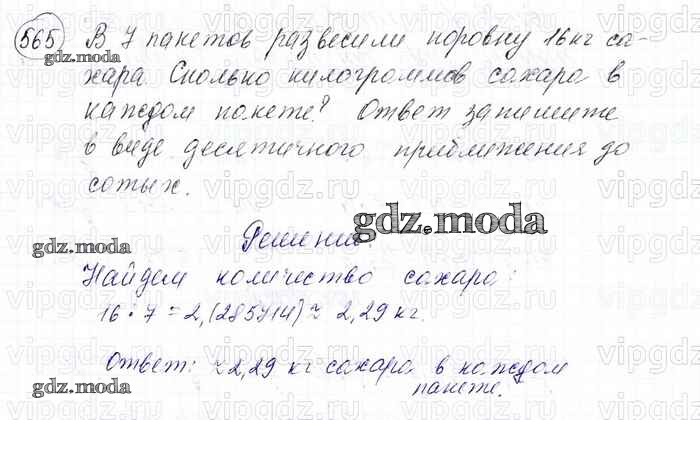 565 В 7 пакетов развесили поровну 16 кг са-
хара. Сколько килограммов сахара в
каждом пакете? Ответ запишите
в виде десятичного приближения до
сотых.
Решение:
Найдем количество сахара:
16 : 7 = 2,(285714) ≈ 2,29 кг.
Ответ: ≈ 2,29 кг сахара в каждом
пакете.
gdz.moda
gdz.moda
gdz.moda
gdz.moda
vipgdz.ru